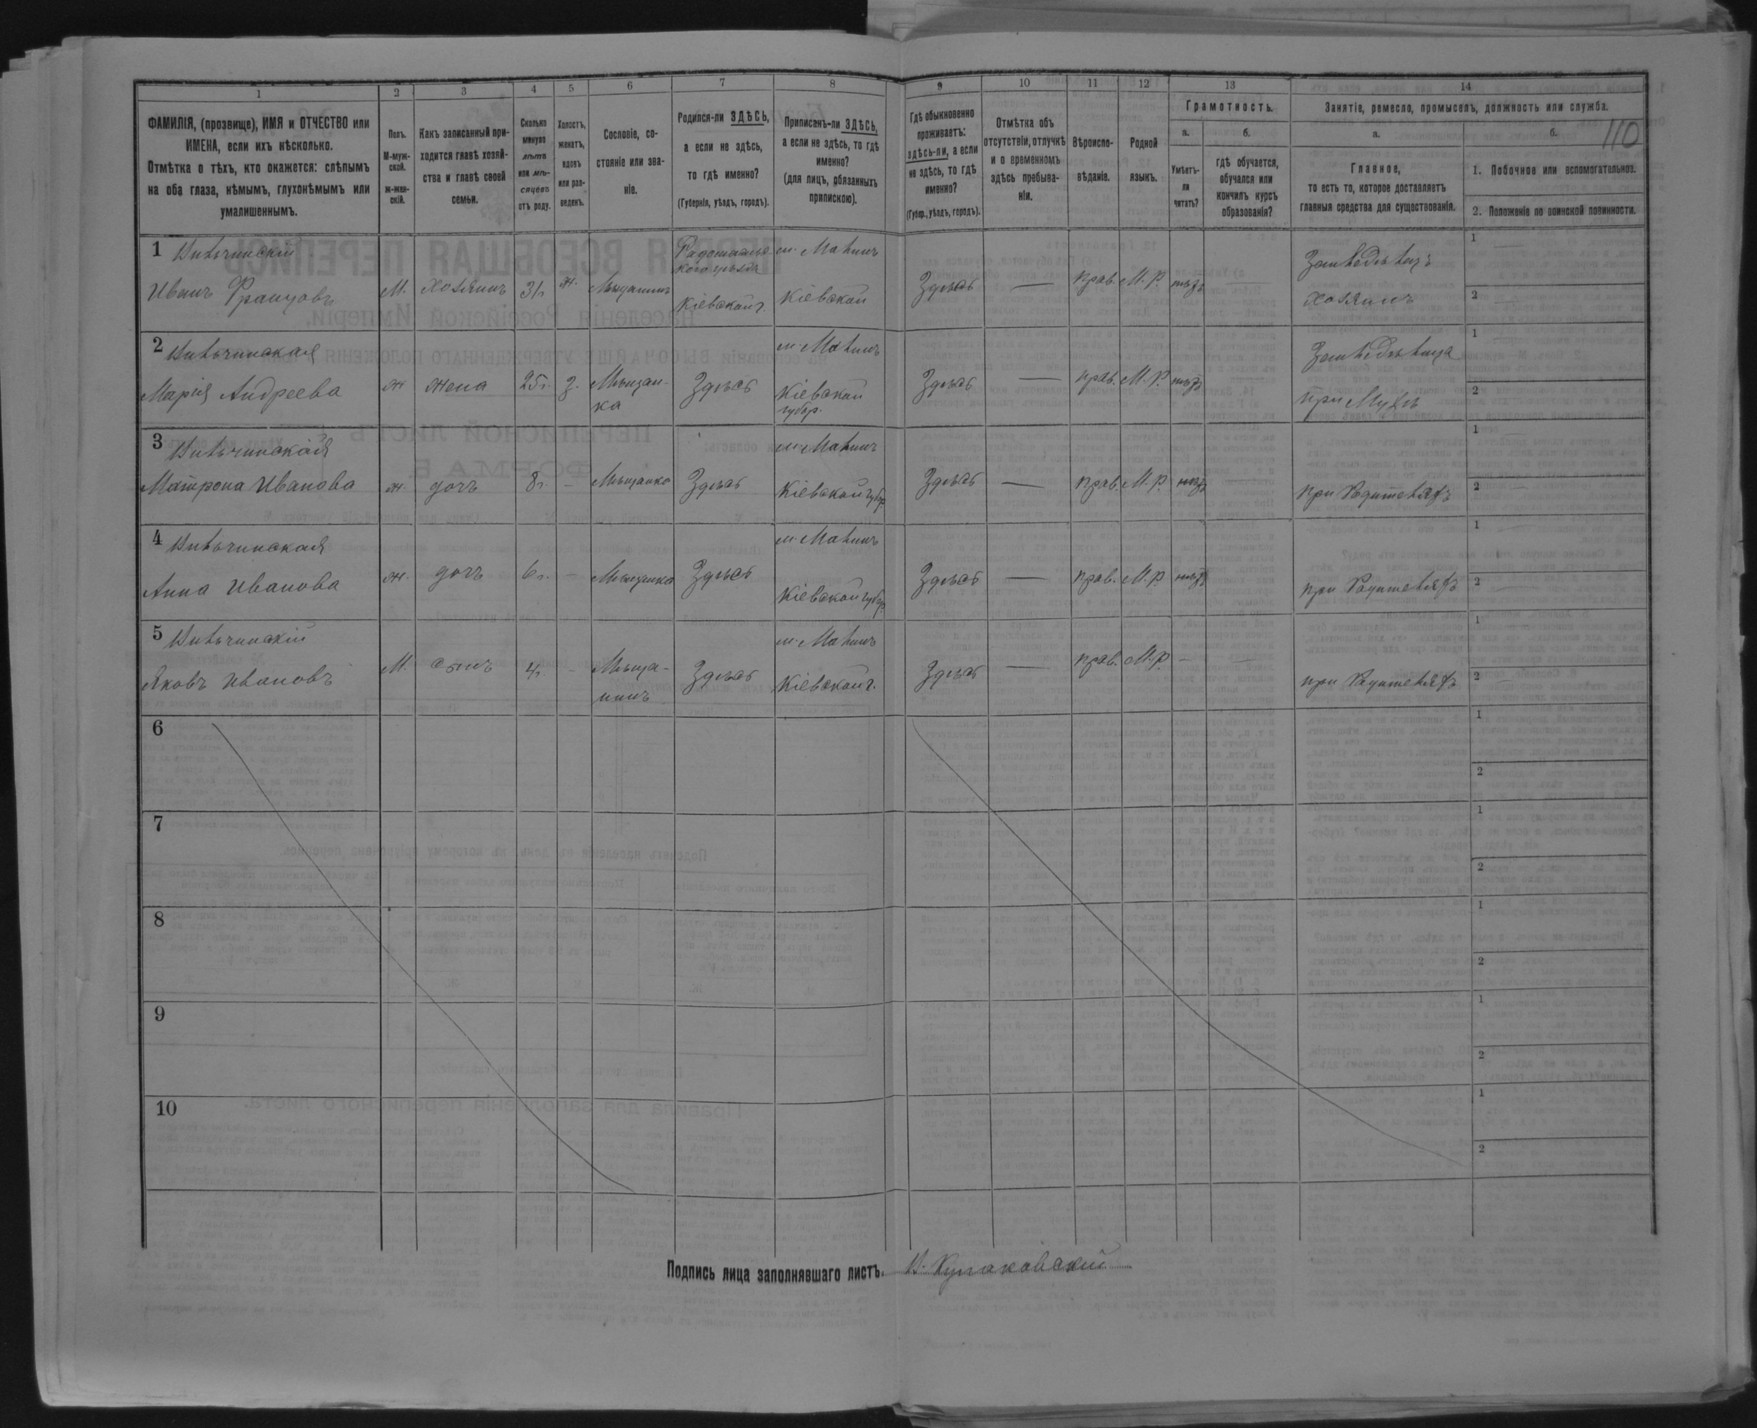 1 2 3 4 5 6 7 8 9 10 11 12 13 14
ФАМИЛІЯ, (прозвище), ИМЯ и ОТЧЕСТВО или
ИМЕНА, если ихъ нѣсколько.
Отмѣтка о тѣхъ, кто окажется: слѣпымъ
на оба глаза, нѣмымъ, глухонѣмымъ или
умалишеннымъ.
Полъ.
М-муж-
ской.
Ж-жен-
скій.
Какъ записанный при-
ходится главѣ хозяй-
ства и главѣ своей
семьи.
Сколько
минуло
лѣтъ
или мѣ-
сяцевъ
отъ роду.
Холостъ,
женатъ,
вдовъ
или раз-
веденъ.
Сословіе, со-
стояніе или зва-
ніе.
Родился-ли ЗДѢСЬ,
а если не здѣсь,
то гдѣ именно?
(Губернія, уѣздъ, городъ).
Приписанъ-ли ЗДѢСЬ,
а если не здѣсь, то гдѣ
именно?
(для лицъ, обязанныхъ
припискою).
Гдѣ обыкновенно
проживаетъ:
здѣсь-ли, а если
не здѣсь, то гдѣ
именно?
(Губер., уѣздъ, городъ).
Отмѣтка объ
отсутствіи, отлучкѣ
и о временномъ
здѣсь пребыва-
ніи.
Вѣроиспо-
вѣданіе.
Родной
языкъ.
Грамотность.
а.
Умѣетъ-
ли
читать?
б.
гдѣ обучается,
обучался или
кончилъ курсъ
образованія?
Занятіе, ремесло, промыселъ, должность или служба.
а.
Главное,
то есть то, которое доставляетъ
главныя средства для существованія.
б.
110
1. Побочное или вспомогательное.
2. Положеніе по воинской повинности.
1
Иванъ Францовъ М. хозяинъ 31 ж. Мѣщанинъ Кіевской г. Кіевской Здѣсь — прав. М. Р.
Земледѣлецъ
хозяинъ
1
2
2
Марія Андреева ж жена 25 г. з. Мѣщан-
ка Здѣсь Кіевской
губер. Здѣсь — прав. М. Р.
Земледѣлица
при Мужѣ
1
2
3
Матрона Иванова ж дочь 8 г. – Мѣщанка Здѣсь Кіевской губер Здѣсь — прав. М. Р.
при Родителяхъ
1
2
4
Анна Иванова ж. дочь 6 г. – Мѣщанка Здѣсь Кіевской губер Здѣсь — прав. М. Р.
при Родителяхъ
1
2
5
Яковъ Ивановъ М. сынъ 4 г. – Мѣща-
нинъ Здѣсь Кіевской г. Здѣсь — прав. М. Р. – —
при Родителяхъ
1
2
6 1
2
7 1
2
8 1
2
9 1
2
10 1
2
Подпись лица заполнявшаго листъ.